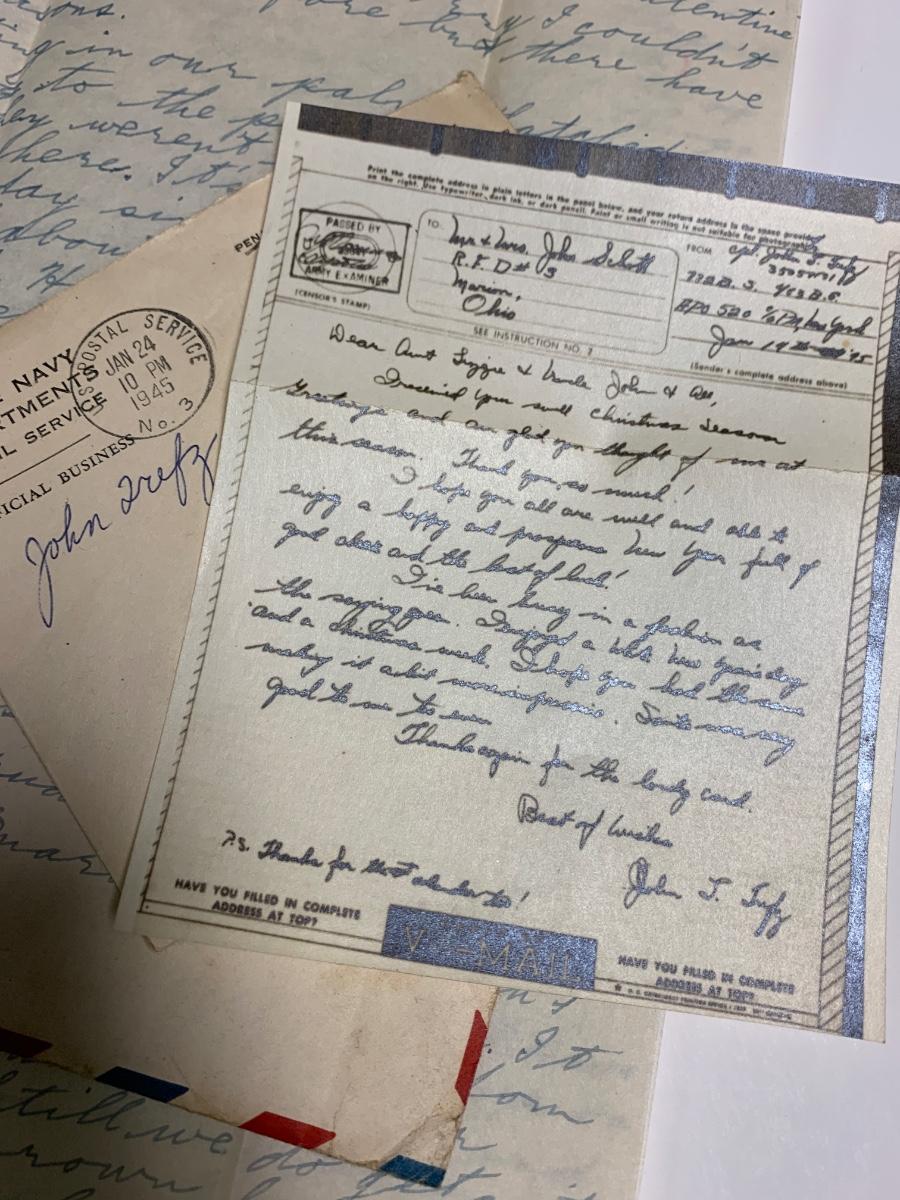 I couldn't
before but there have
ing in our
to the
ey weren't
here. It's
day
about
PEN
NAVY
RTMENTS
L SERVICE
FICIAL BUSINESS
POSTAL SERVICE
JAN 24
10 PM
1945
No. 3
John Trefz
Print the complete address in plain letters in the panel below, and your return address in the space provided
on the right. Use typewriter, dark ink, or dark pencil. Faint or small writing is not suitable for photographing.
PASSED BY
ARMY EXAMINER
(CENSOR'S STAMP)
TO:
Mr & Mrs. John Schott
R.F.D # 3
Marion,
Ohio
SEE INSTRUCTION NO. 2
FROM
Cpl. John T. Trefz
772 B.S. 463 B.G.
APO 520 % PM, New York
Jan 14 45
(Sender's complete address above)
Dear Aunt Lizzie & Uncle John & All,
I received your swell Christmas Season
Greetings and am glad you thought of me at
this season. Thank you so much!
I hope you all are well and able to
enjoy a happy and prosperous New Year full of
good cheer and the best of luck!
I've been busy in a fashion as
the saying goes. I enjoyed a White New Years day
and a Christmas week. I hope you had the same
making it a bit more impressive. Santa was very
good to me too even
Thanks again for the lovely card.
Best of Wishes
John T. Trefz
P.S. Thanks for that calendar too!
HAVE YOU FILLED IN COMPLETE
ADDRESS AT TOP?
V-MAIL
HAVE YOU FILLED IN COMPLETE
ADDRESS AT TOP?
It
from
still we do